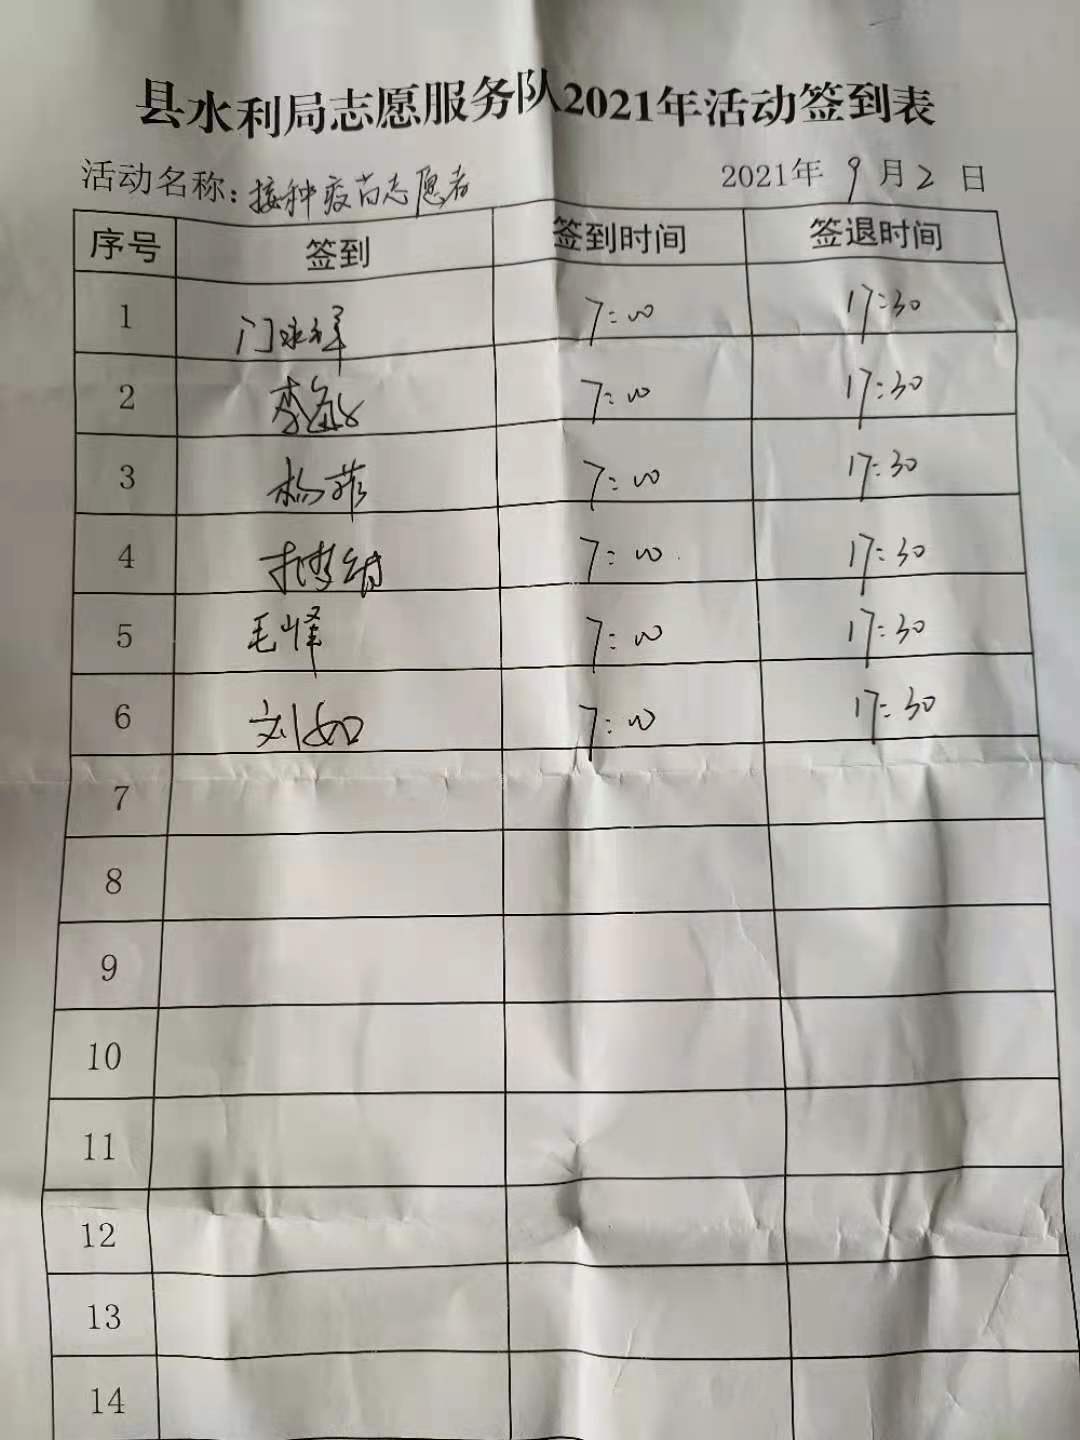 县水利局志愿服务队2021年活动签到表
活动名称：接种疫苗志愿者 2021年 9月2日
序号 签到 签到时间 签退时间
1 门永祥 7:00 17:30
2 李敏 7:00 17:30
3 杨菲 7:00 17:30
4 7:00 17:30
5 毛峰 7:00 17:30
6 刘如 7:00 17:30
7
8
9
10
11
12
13
14